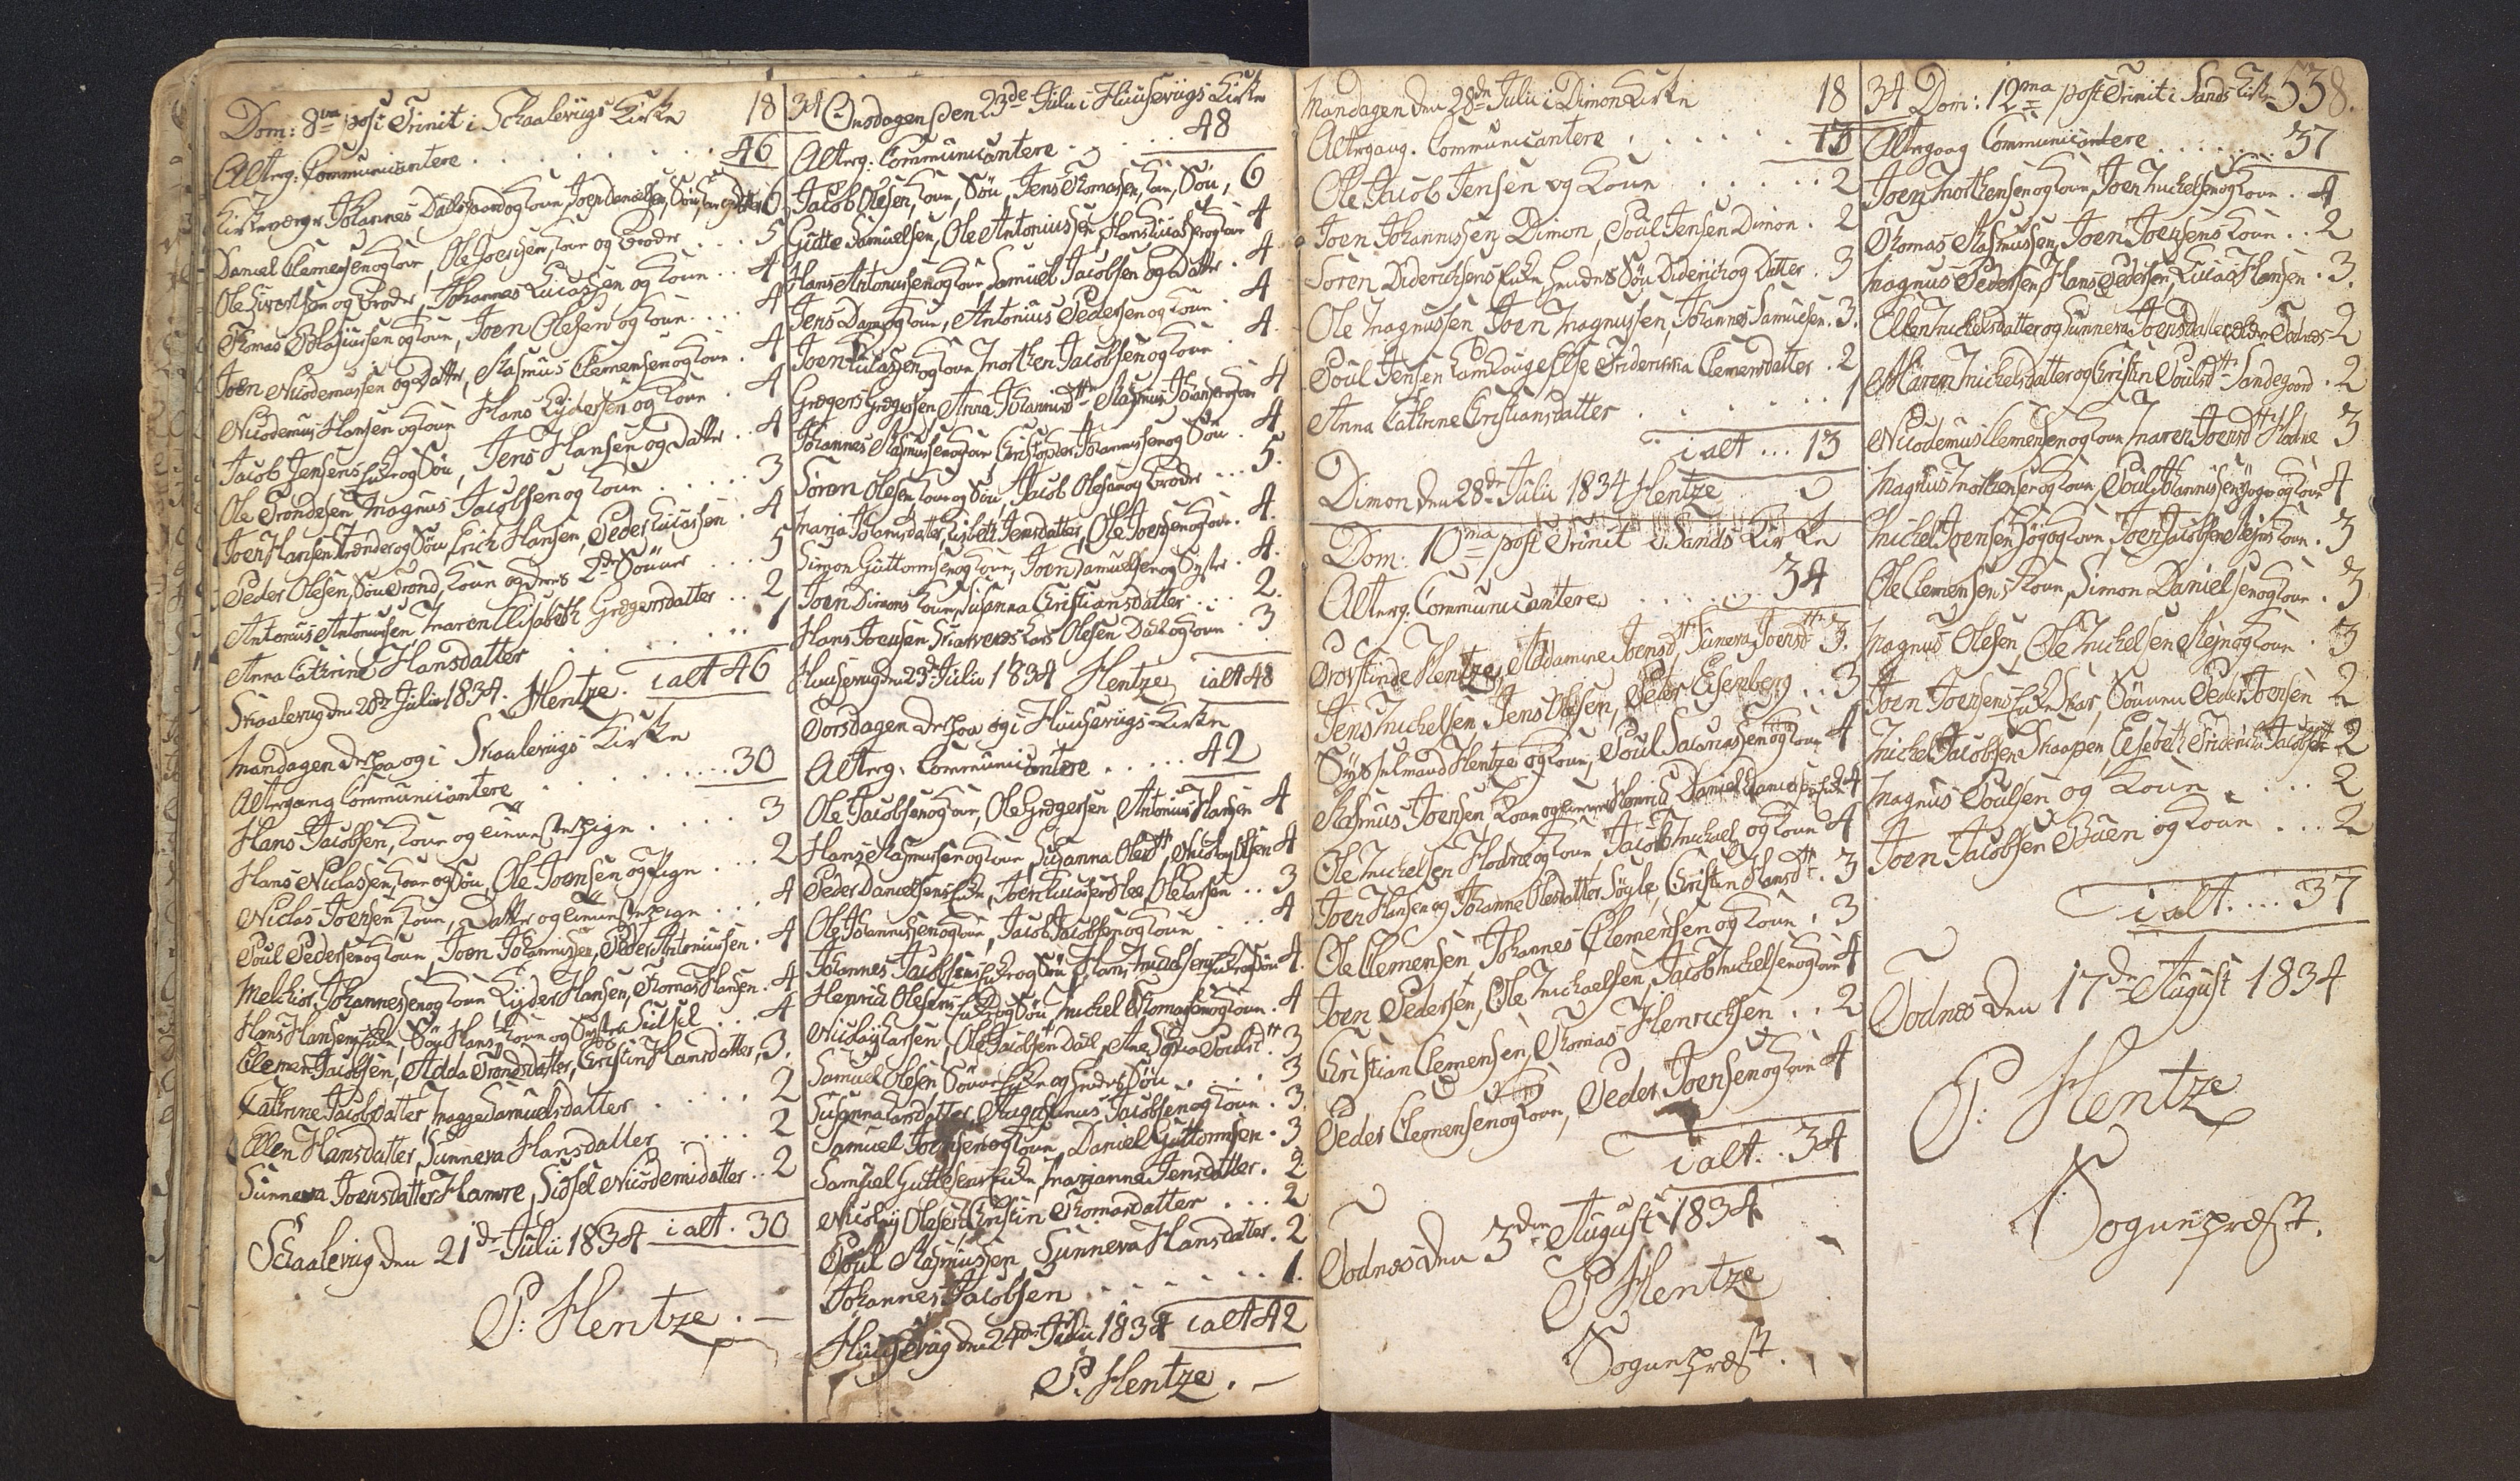 Dom: 8va post Trinit i Schaalevigs Kirke 18
Alterg: Communicantere 46
Kirkeværge Johannes Dalsgaard og Kone, Joen Danielsen, Søn, 6
Daniel Clemensen og Kone, Ole Joensen, Kone og Broder 5
Ole Sivertsen og Broder, Johannes Lucassen og Kone 4
Thomas Rasmussen og Kone, Joen Olesen og Kone 4
Joen Nicodemussen og Datter, Rasmus Clemensen og Kone 4
Nicodemus Hansen og Kone Hans Rydersen og Kone 4
Jacob Jensens Enke og Søn, Jens Hansen og Datter 4
Ole Trondesen Magnus Jacobsen og Kone 3
Joen Hansen Trænde og Søn Erich Hansen, Peder Lucassen 4
Peder Olesen, Søn Trond, Kone og deres 2de Sönner 5
Antonius Antoniussen Maren Elisabeth Gregersdatter 2
Anna Cathrine Hansdatter 1
Skaalevig den 20de Julii 1834. Hentze. ialt 46
Mandagen derpaa og i Skaalevigs Kirke
Altergang Communicantere 30
Hans Jacobsen, Kone og Tienestepige 3
Hans Niclassen, Kone og Søn, Ole Joensen og Pige 2
Niclas Joensen Kone, Datter og Tienestepige 4
Poul Pedersen og Kone, Joen Johannissen, Peder Antoniussen 4
Melchior Johannesen og Kone Ryder Hansen, Thomas Hansen 4
Hans Hansens Enke, Søn Hans, Kone og Syster Sidsel 4
Clemen Jacobsen, Adda Trondsdatter, Christin Hansdatter, 3.
Cathrine Jacobsdatter, Magge Samuelsdatter 2
Ellen Hansdatter, Sunneva Hansdatter 2
Sunneva Joensdatter Hamre, Sidsel Nicodemidatter 2
Schaalevig den 21de Julii 1834 ialt. 30
P: Hentze.
34 Onsdagen den 23de Julii i Huusevigs Kirke
Alterg: Communicantere 48
Jacob Olesen, Kone, Søn, Jens Thomasen, Kone, Søn, 6
Gutte Samuelsen, Ole Antoniussen, Hans Lucassen og Kone 4
Hans Antoniussen og Kone, Samuel Jacobsen og Datter 4
Jens Dam og Kone, Antonius Pedersen og Kone 4
Joen Lucassen og Kone Morten Jacobsen og Kone 4.
Gregers Gregersen, Anna Johannisdtr Rasmus Johansen og Kone 4
Johannes Rasmussen og Kone Christopher Johannessen og Søn 4
Søren Olesen, Kone og Søn, Jacob Olesen og Broder 5.
Maria Johannisdatter, Lisbeth Jensdatter, Ole Joensen og Kone 4.
Simon Guttormsen og Kone, Joen Samuelsen og Syster 4.
Joen Dimons Kone, Susanna Christiansdatter 2.
Hans Joensen Skarvenes, Lars Olesen Dahl og Kone 3
Huusevig den 23de Julii 1834 Hentze ialt 48
Torsdagen derpaa og i Huusevigs Kirke
Alterg: Communicantere 42
Ole Jacobsen og Kone, Ole Gregersen, Antonius Hansen 4
Hans Rasmussen og Kone, Susanna Olesdtr, Nicolay Olsen 4
Peder Danielsens Enke, Joen Lucassen, Ole Larsen 3
Ole Johannissen og Kone, Jacob Jacobsen og Kone 4
Johannes Jacobsens Enke og Søn 4.
Henrich Olesens Enke og Søn, Michel Thomasen og Kone 4
Nicolay Larsen, Ole Jacobsen Dahl, Ane Sophia Poulsdtr 3
Samuel Olesen, 3
Susanna Larsdatter, Augustinus Jacobsen og Kone 3.
Samuel Joensen og Kone, Daniel Guttormsen 3
Samuel Guttesens Enke, Marianna Jensdatter 2
Nicolay Olesen, Christin Thomasdatter 2
Poul Rasmussen, Sunneva Hansdatter 2
Johannes Jacobsen 1.
Huusevig den 24de Julii 1834 ialt 42
P. Hentze.
Mandagen den 28de Julii i Dimon Kirke 18
Altergang. Communicantere 13
Ole Jacob Jensen og Kone 2
Joen Johannissen Dimon, Poul Jensen Dimon 2
Søren Diderichsens Enke hendes Søn Diderich og Datter 3
Ole Magnussen Joen Magnussen, Johannes Samuelsen 3.
Poul Jensen Friderikka Clemensdatter 2
Anna Cathrine Christiansdatter 1
ialt 13
Dimon den 28de Julii 1834 Hentze
Dom: 10ma post Trinit i Sands Kirke
Alterg. Communicantere 34
Provstinde Hentze, Addamine Joensdtr, Suneva Joensdtr 3.
Jens Michelsen, Jens Olesen, Peder Eisenberg 3
Sysselmand Hentze og Kone, Poul Sacariassen og Kone 4
Rasmus Joensen Kone 4
Ole Michelsen Hodne og Kone Jacob Michael og Kone 4
Joen Hansen og Johanne Olesdatter Søyle, Christin Hansdtr 3
Ole Clemensen, Johannes Clemensen og Kone 3
Joen Pedersen, Ole Michaelsen, Jacob Michelsen og Kone 4
Christian Clemensen, Thomas Henrichsen 2
Peder Clemensen og Kone, Peder Joensen og Kone 4
ialt. 34
Todnes den 3die August 1834
P Hentze
Sognepræst.
34 Dom: 12ma post Trinit i Sands Kirke 538.
Altergang Communicantere 37
Joen Mortensen og Kone, Joen Michelsen og Kone 4
Thomas Rasmussen, Joen Joensens Kone 2
Magnus Pedersen, Hans Pedersen, Lucas Hansen 3.
Ellen Michelsdatter og Sunneva Joensdatter Todnes 2
Maren Michelsdatter og Christin Poulsdtr Sandegaard 2
Nicodemus Clemensen og Kone Maren Joensdtr Hodne 3
Magnus Mortensen og Kone, Poul Johannissen og Kone 4
Michel Joensen og Kone, Joen Jacobsen Kone 3
Ole Clemensens Kone, Simon Danielsen og Kone 3
Magnus Olesen, Ole Michelsen og Kone 3
Joen Joensens Enke, Sønnen Peder Joensen 2
Michel Jacobsen Skaapen, Elsebeth 2
Magnus Poulsen og Kone 2
Joen Jacobsen og Kone 2
ialt. 37
Todnes den 17de August 1834
P: Hentze
Sognepræst.